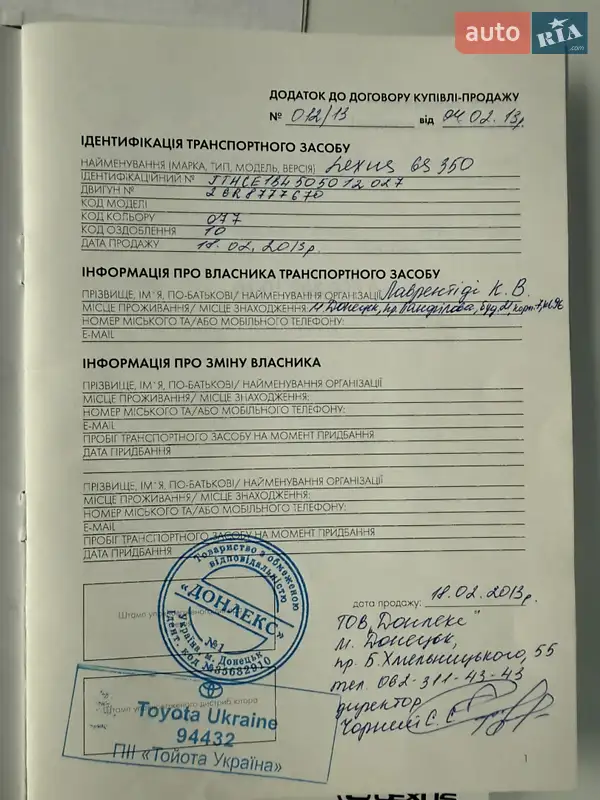 auto RIA.com
ДОДАТОК ДО ДОГОВОРУ КУПІВЛІ-ПРОДАЖУ
№ 012/13 від 04.02.13р.
ІДЕНТИФІКАЦІЯ ТРАНСПОРТНОГО ЗАСОБУ
НАЙМЕНУВАННЯ (МАРКА, ТИП, МОДЕЛЬ, ВЕРСІЯ) Lexus GS 350
ІДЕНТИФІКАЦІЙНИЙ № JTHCE134505012027
ДВИГУН № 2GR8777670
КОД МОДЕЛІ
КОД КОЛЬОРУ 077
КОД ОЗДОБЛЕННЯ 10
ДАТА ПРОДАЖУ 18.02.2013р.
ІНФОРМАЦІЯ ПРО ВЛАСНИКА ТРАНСПОРТНОГО ЗАСОБУ
ПРІЗВИЩЕ, ІМ'Я, ПО-БАТЬКОВІ/ НАЙМЕНУВАННЯ ОРГАНІЗАЦІЇ Лаврентіді К. В.
МІСЦЕ ПРОЖИВАННЯ/ МІСЦЕ ЗНАХОДЖЕННЯ: м. Донецьк, пр. Панфілова, буд.
НОМЕР МІСЬКОГО ТА/АБО МОБІЛЬНОГО ТЕЛЕФОНУ:
E-MAIL
ІНФОРМАЦІЯ ПРО ЗМІНУ ВЛАСНИКА
ПРІЗВИЩЕ, ІМ'Я, ПО-БАТЬКОВІ/ НАЙМЕНУВАННЯ ОРГАНІЗАЦІЇ
МІСЦЕ ПРОЖИВАННЯ/ МІСЦЕ ЗНАХОДЖЕННЯ:
НОМЕР МІСЬКОГО ТА/АБО МОБІЛЬНОГО ТЕЛЕФОНУ:
E-MAIL
ПРОБІГ ТРАНСПОРТНОГО ЗАСОБУ НА МОМЕНТ ПРИДБАННЯ
ДАТА ПРИДБАННЯ
ПРІЗВИЩЕ, ІМ'Я, ПО-БАТЬКОВІ/ НАЙМЕНУВАННЯ ОРГАНІЗАЦІЇ
МІСЦЕ ПРОЖИВАННЯ/ МІСЦЕ ЗНАХОДЖЕННЯ:
НОМЕР МІСЬКОГО ТА/АБО МОБІЛЬНОГО ТЕЛЕФОНУ:
E-MAIL
ПРОБІГ ТРАНСПОРТНОГО ЗАСОБУ НА МОМЕНТ ПРИДБАННЯ
ДАТА ПРИДБАННЯ
Товариство з обмеженою
відповідальністю
«ДОНЛЕКС»
№1
Україна, м. Донецьк
Ідент. код №35682910
Штамп
Штамп уповноваженого дистриб'ютора
Toyota Ukraine
94432
ПІІ «Тойота Україна»
дата продажу: 18.02.2013р.
ТОВ "Донлекс"
м. Донецьк,
пр. Б. Хмельницького, 55
тел. 062-311-43-43
директор
С. С.
1
LEXUS